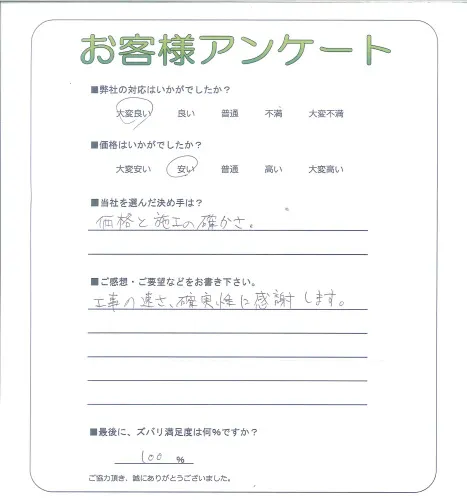 お客様アンケート
■弊社の対応はいかがでしたか？
大変良い 良い 普通 不満 大変不満
■価格はいかがでしたか？
大変安い 安い 普通 高い 大変高い
■当社を選んだ決め手は？
価格と施工の確かさ。
■ご感想・ご要望などをお書き下さい。
工事の速さ、確実性に感謝します。
■最後に、ズバリ満足度は何%ですか？
100 %
ご協力頂き、誠にありがとうございました。